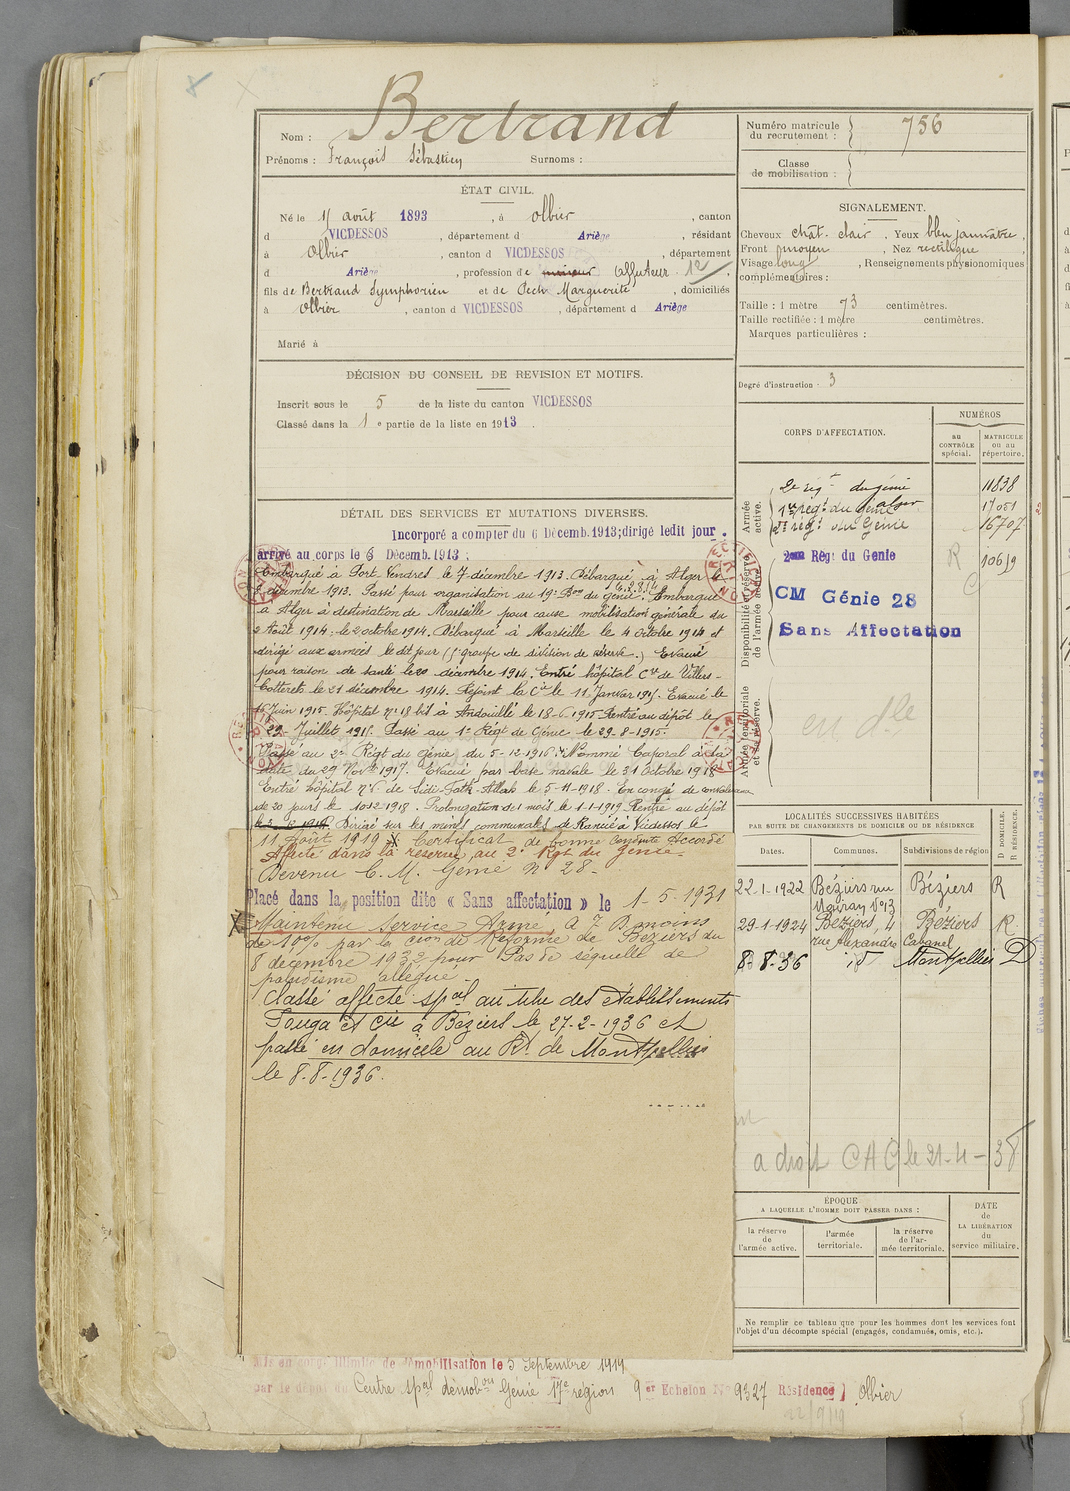 Bertrand
Nom :
Prénoms : François Sébastien Surnoms :
ÉTAT CIVIL.
Né le 15 août 1893, à Olbier, canton
d VICDESSOS, département d Ariège, résidant
à Olbier, canton d VICDESSOS, département
d Ariège, profession de mineur Affuteur 12
fils de Bertrand Symphorien et de Pech Marguerite, domiciliés
à Olbier, canton d VICDESSOS, département d Ariège
Marié à
DÉCISION DU CONSEIL DE REVISION ET MOTIFS.
Inscrit sous le 5 de la liste du canton VICDESSOS
Classé dans la 1 e partie de la liste en 1913.
DÉTAIL DES SERVICES ET MUTATIONS DIVERSES.
Incorporé a compter du 6 Décemb. 1913; dirigé ledit jour.
arrivé au corps le 6 Décemb. 1913 ;
Embarqué à Port Vendres le 7 décembre 1913. Débarqué à Alger le
décembre 1913. Passé pour organisation au 19e Bon du génie. Embarqué
à Alger à destination de Marseille pour cause mobilisation générale du
2 Août 1914 : le 2 octobre 1914. Débarqué à Marseille le 4 octobre 1914 et
dirigé aux armées le dit jour ( groupe de division de réserve.) Evacué
pour raison de santé le 20 décembre 1914. Entré hôpital Cre de Villers-
Cotterets le 21 décembre 1914. Rejoint la Cie le 11 Janvier 1915. Evacué le
16 Juin 1915. Hôpital no 18 bis à Andouillé le 18-6-1915 Rentré au dépôt le
29 Juillet 1915. Passé au 1er Régt de Génie le 29-8-1915.
Passé au 2e Régt du génie du 5-12-1916. Nommé Caporal à la
date du 29 Novbre 1917. Evacué par base navale le 31 octobre 1918
Entré hôpital no 6 de Sidi-Fath-Allah le 5-11-1918. En congé de convalescence
de 20 jours le 10-12-1918. Prolongation de 1 mois le 1-1-1919 Rentré au dépôt
Dirigé sur les mines communales de Rancié à Vicdessos le
11 Août 1919 X Certificat de bonne conduite Accordé
Affecté dans la réserve au 2e Rgt du Génie.
Devenu C. M. Génie No 28-
Placé dans la position dite « Sans affectation » le 1-5-1931
X Maintenu Service Armé. A 7 B moins
de 10% par la Con de Réforme de Béziers du
8 décembre 1932 pour Pas de séquelle de
paludisme allégué.
Classé affecté spal au titre des établissements
Fouga et Cie à Béziers le 27-2-1936 et
passé en domicile au Rt de Montpellier
le 8-8-1936.
Mis en congé illimité de démobilisation le 5 Septembre 1919
par le dépôt du Centre spal démobon Génie 17e région 9 er Echelon No 9327 Résidence } Olbier
22/9/19
Numéro matricule
du recrutement : 756
Classe
de mobilisation :
SIGNALEMENT.
Cheveux chât. clair, Yeux bleu jaunâtre,
Front moyen, Nez rectiligne,
Visage long, Renseignements physionomiques
complémentaires :
Taille : 1 mètre 73 centimètres.
Taille rectifiée : 1 mètre centimètres.
Marques particulières :
Degré d'instruction - 3
CORPS D'AFFECTATION.
NUMÉROS
au
CONTRÔLE
spécial.
MATRICULE
ou au
répertoire.
Armée
active.
2e régt du génie 11838
1er régt du génie 17051
2e régt du Génie 16707
Disponibilité et réserve
de l'armée active.
2me Régt du Genie R 10619
C
CM Génie 28
Sans Affectation
Armée territoriale
et sa réserve.
en dle
LOCALITÉS SUCCESSIVES HABITÉES
PAR SUITE DE CHANGEMENTS DE DOMICILE OU DE RÉSIDENCE
Dates. Communes. Subdivisions de région
D DOMICILE.
R RÉSIDENCE.
22-1-1922 Béziers rue Béziers R
Mairan No 13
29-1-1924 Béziers, 4 Béziers R
rue Alexandre Cabanel
8-8-36 id Montpellier D
a droit CAC le 21-4-38
ÉPOQUE
A LAQUELLE L'HOMME DOIT PASSER DANS :
la réserve
de
l'armée active.
l'armée
territoriale.
la réserve
de l'ar-
mée territoriale.
DATE
de
LA LIBÉRATION
du
service militaire.
Ne remplir ce tableau que pour les hommes dont les services font
l'objet d'un décompte spécial (engagés, condamnés, omis, etc.).